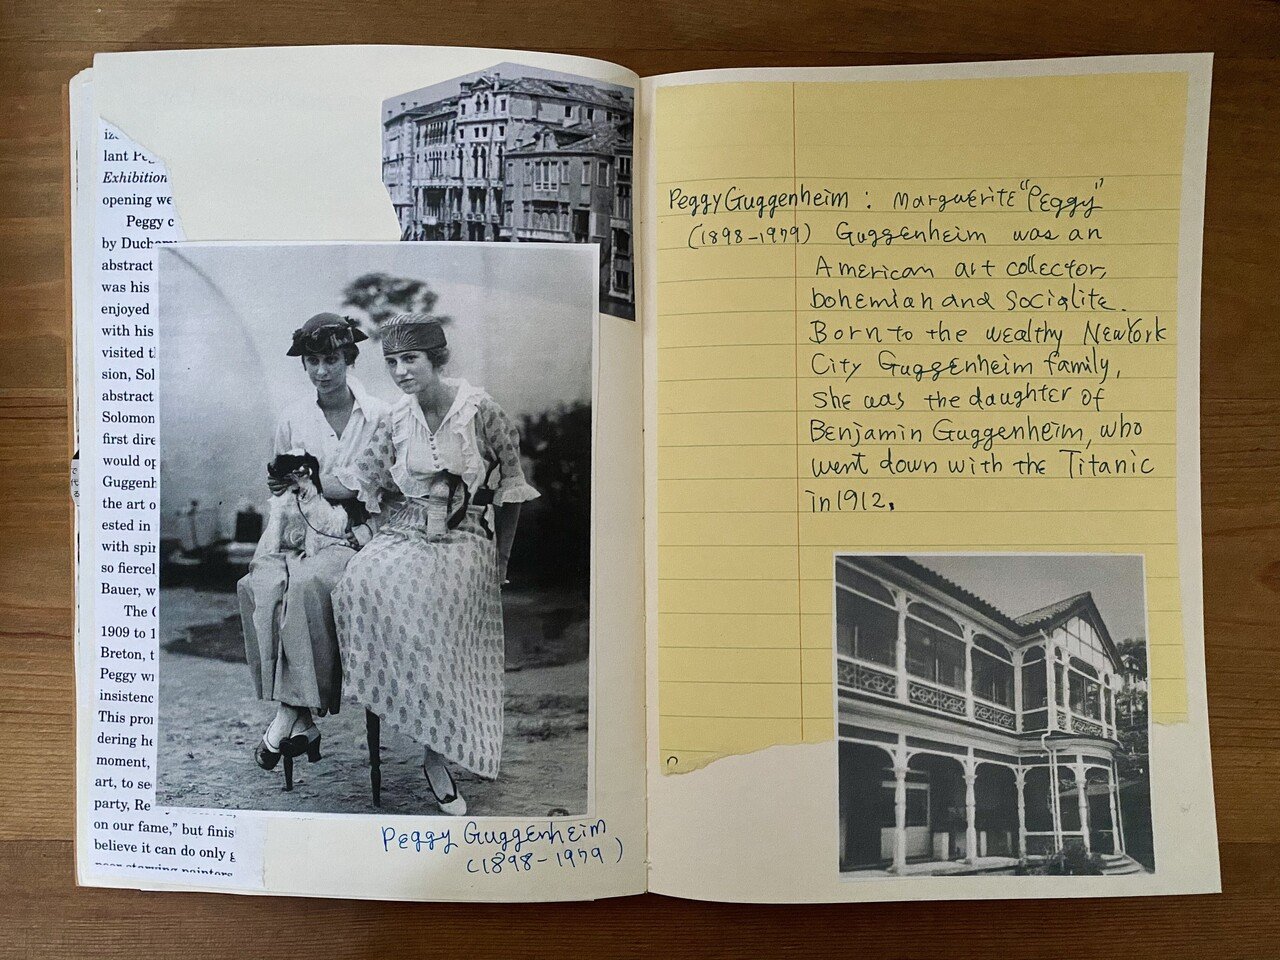 lant
Exhibition
opening we
Peggy c
by Ducham
abstract
was his
enjoyed
with his
visited t
sion, Sol
abstract
Solomon
first dire
would op
Guggenh
the art o
ested in
with spir
so fiercel
Bauer, w
The
1909 to 1
Breton, t
Peggy wr
insistenc
This pro
dering he
moment,
art, to se
party, Re
on our fame,” but finis
believe it can do only g
Peggy Guggenheim
(1898-1979)
Peggy Guggenheim : Marguerite “Peggy”
(1898-1979) Guggenheim was an
American art collector,
bohemian and socialite.
Born to the wealthy New York
City Guggenheim family,
she was the daughter of
Benjamin Guggenheim, who
went down with the Titanic
in 1912.